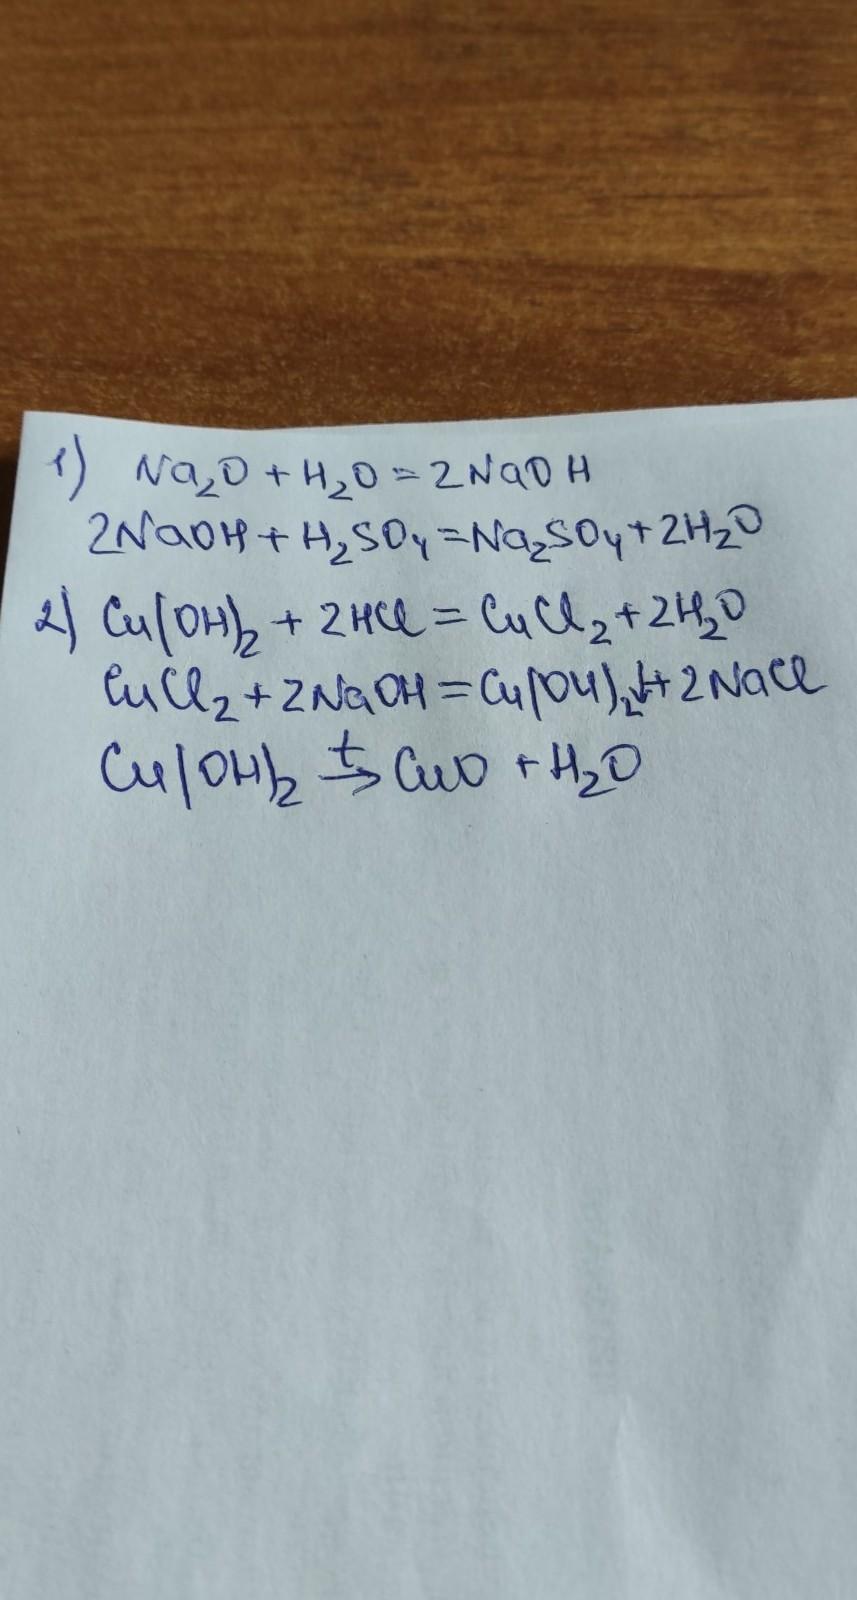 1) Na₂O + H₂O = 2NaOH
2NaOH + H₂SO₄ = Na₂SO₄ + 2H₂O
2) Cu(OH)₂ + 2HCl = CuCl₂ + 2H₂O
CuCl₂ + 2NaOH = Cu(OH)₂↓ + 2NaCl
Cu(OH)₂ t→ CuO + H₂O